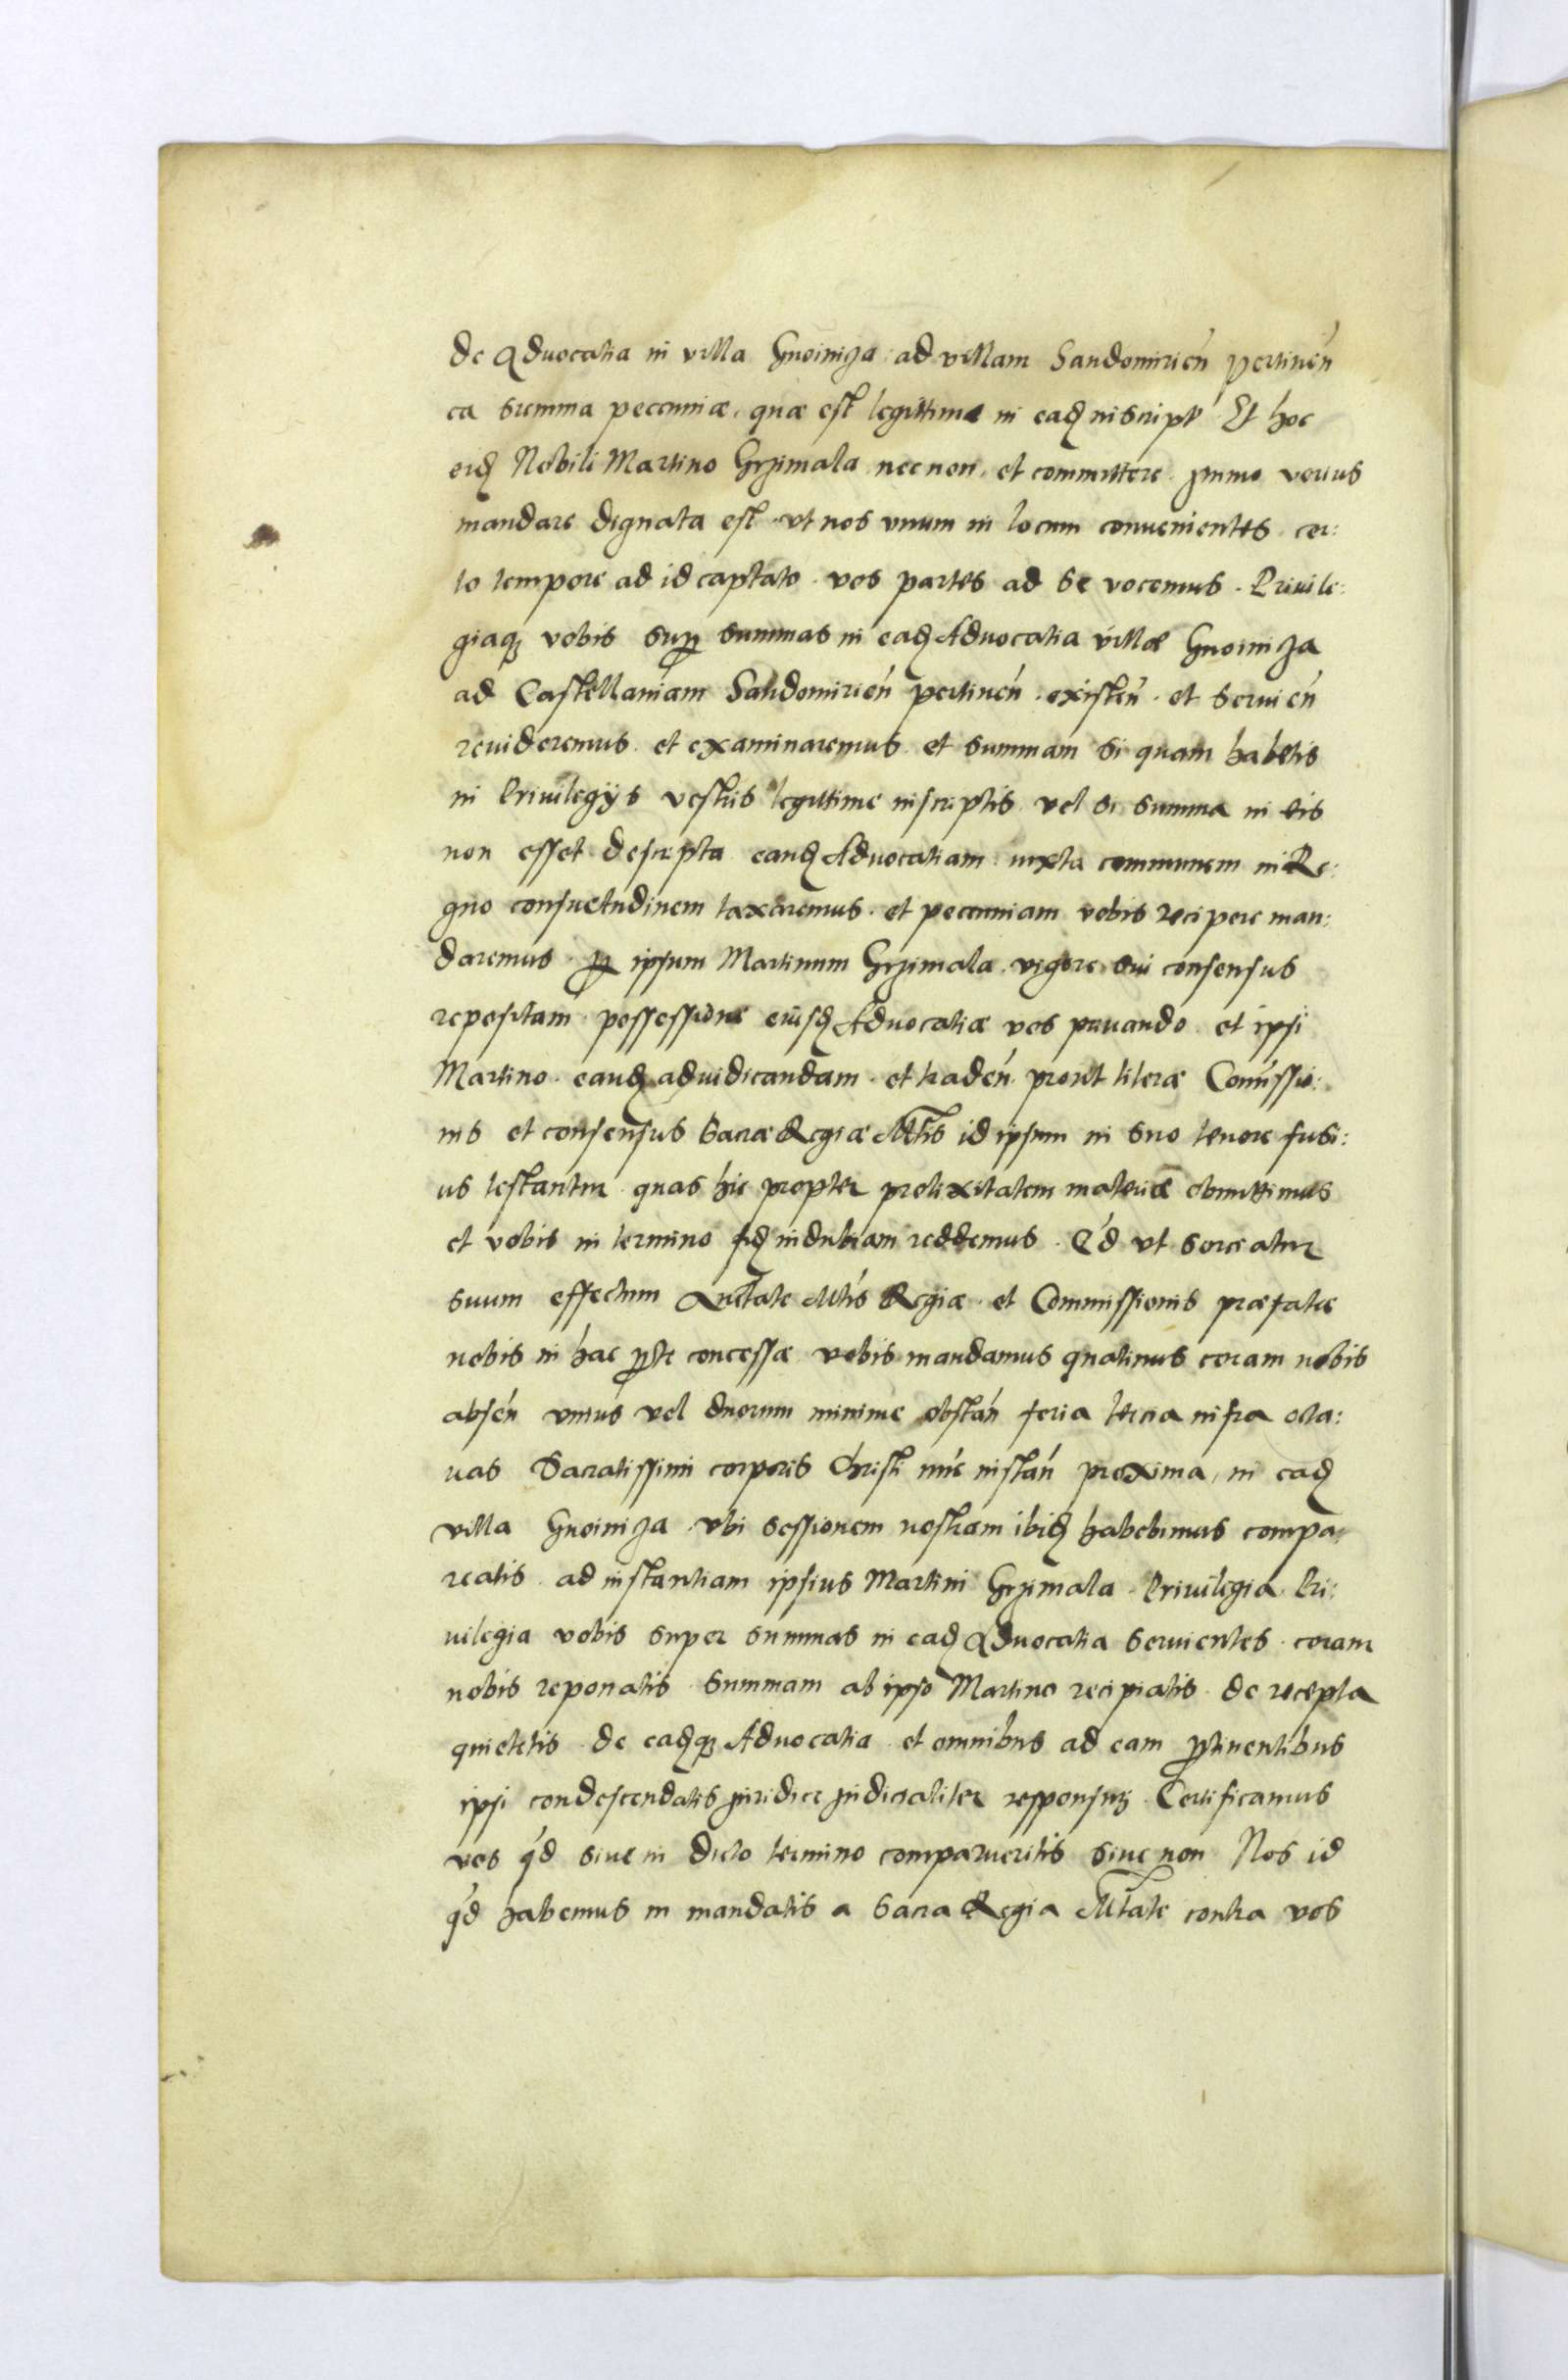 de Advocatia in villa Gnoiniza ad villam Sandomirień pertineń
ea summa pecuniæ, quæ est legittime in eadꝫ inscript' Et hoc
eidꝫ Nobili Martino Grzimala necnon et committere ymmo verius
mandare dignata est vt nos vnum in locum convenientes cer:
to tempore ad id captato vos partes ad se vocemus. Privile:
giaqꝫ vobis suꝑ summas in eadꝫ Advocatia villæ Gnoiniza
ad Castellaniam Sandomirień pertineń existeń et servień
revideremus et examinaremus et summam si quam habetis
in Privilegijs vestris legittime inscriptis vel si summa in eis
non esset descripta eandꝫ Advocatiam iuxta communem in Re:
gno consuetudinem taxaremus et pecuniam vobis recipere man:
daremus ꝑ ipsum Martinum Grzimala vigore sui consensus
repositam possessione eiusdꝫ Advocatiæ vos privando et ipsi
Martino eandꝫ adiudicandam et tradeń prout literæ Comissio:
nis et consensus Sacræ Regiæ Mtis id ipsum in suo tenore fusi:
us testantur quas hic propter prolixitatem materiæ obmittimus
et vobis in termino fidꝫ indubiam reddemus. Q'd vt sorciatur
suum effectum Auctate Mtis Regiæ et Commissionis præfatæ
nobis in hac ꝑte concessæ vobis mandamus quatinus coram nobis
abseń vnius vel duorum minime obstań feria tercia infra octa:
vas Sacratissimi corporis Christi nunc instań proxima, in eadꝫ
villa Gnoiniza vbi sessionem nostram ibidꝫ habebimus compa:
reatis ad instantiam ipsius Martini Grzimala Privilegia Pri:
vilegia vobis super summas in eadꝫ Advocatia servientes coram
nobis reponatis summam ab ipso Martino recipiatis de recepta
quietetis de eadꝫqꝫ Advocatia et omnibus ad eam ꝑtinentibus
ipsi condescendatis juridice judicialiter responsuri Certificamus
vos q'd sive in dicto termino comparueritis sive non Nos id
q'd habemus in mandatis a Sacra Regia Mtate contra vos